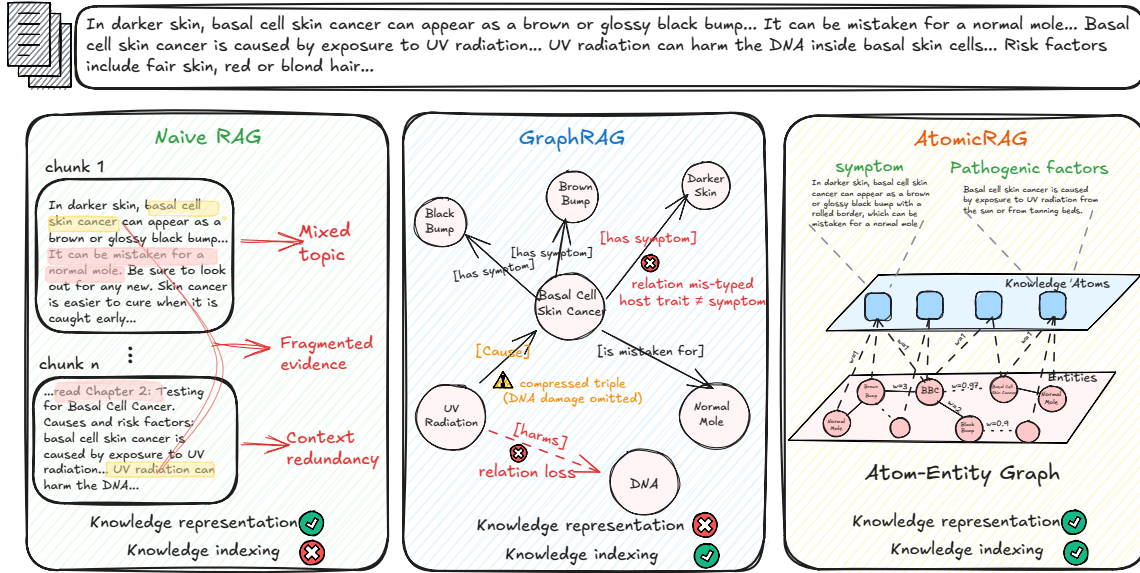 In darker skin, basal cell skin cancer can appear as a brown or glossy black bump... It can be mistaken for a normal mole... Basal
cell skin cancer is caused by exposure to UV radiation... UV radiation can harm the DNA inside basal skin cells... Risk factors
include fair skin, red or blond hair...
Naive RAG
chunk 1
In darker skin, basal cell
skin cancer can appear as a
brown or glossy black bump...
It can be mistaken for a
normal mole. Be sure to look
out for any new. Skin cancer
is easier to cure when it is
caught early...
Mixed
topic
Fragmented
evidence
chunk n
...read Chapter 2: Testing
for Basal Cell Cancer.
Causes and risk factors:
basal cell skin cancer is
caused by exposure to UV
radiation... UV radiation can
harm the DNA...
Context
redundancy
Knowledge representation
Knowledge indexing
GraphRAG
Black
Bump
Brown
Bump
Darker
Skin
[has symptom]
[has symptom]
[has symptom]
relation mis-typed
host trait ≠ symptom
Basal Cell
Skin Cancer
[Cause]
[is mistaken for]
compressed triple
(DNA damage omitted)
UV
Radiation
Normal
Mole
[harms]
relation loss
DNA
Knowledge representation
Knowledge indexing
AtomicRAG
symptom
In darker skin, basal cell skin
cancer can appear as a brown
or glossy black bump with a
rolled border, which can be
mistaken for a normal mole
Pathogenic factors
Basal cell skin cancer is caused
by exposure to UV radiation from
the sun or from tanning beds.
Knowledge Atoms
w=1
w=1
w=1
w=1
Entities
Brown
Bump
w=3
BBC
w=0.97
Basal Cell
Skin Cancer
Normal
Mole
Normal
Mole
w=2
Black
Bump
w=0.9
Atom-Entity Graph
Knowledge representation
Knowledge indexing